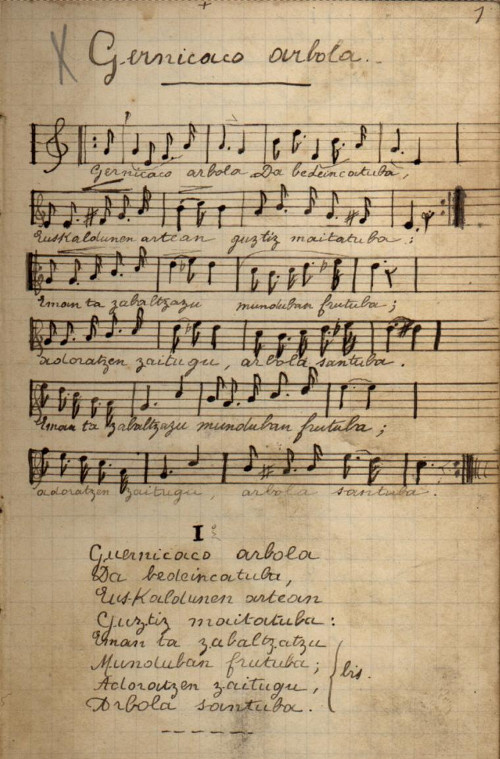 1
X Gernicaco arbola.
Gernicaco arbola Da bedeincatuba,
Euskaldunen artean guztiz maitatuba:
Eman ta zabaltzazu munduban frutuba;
adoratzen zaitugu, arbola santuba.
Eman ta zabaltzazu munduban frutuba;
adoratzen zaitugu, arbola santuba.
I
Guernicaco arbola
Da bedeincatuba,
Euskaldunen artean
Guztiz maitatuba:
Eman ta zabaltzatzu
Munduban frutuba;
Adoratzen zaitugu, bis.
Arbola santuba.